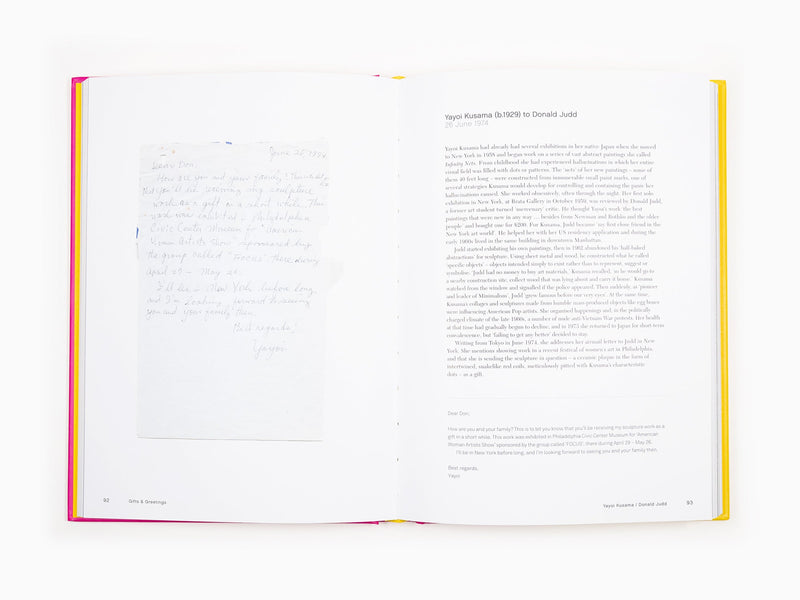 June 25, 1974
Dear Don,
How are you and your family? This is to let
that you'll be receiving my sculpture
work as a gift in a short while. This
work was exhibited in Philadelphia
Civic Center Museum for "American
Woman Artists Show" sponsored by
the group called "FOCUS" there during
April 29 – May 26.
I'll be in New York before long,
and I'm looking forward to seeing
you and your family then.
Best regards,
Yayoi
92
Gifts & Greetings
Yayoi Kusama (b.1929) to Donald Judd
26 June 1974
Yayoi Kusama had already had several exhibitions in her native Japan when she moved
to New York in 1958 and began work on a series of vast abstract paintings she called
Infinity Nets. From childhood she had experienced hallucinations in which her entire
visual field was filled with dots or patterns. The 'nets' of her new paintings – some of
them 40 feet long – were constructed from innumerable small paint marks, one of
several strategies Kusama would develop for controlling and containing the panic her
hallucinations caused. She worked obsessively, often through the night. Her first solo
exhibition in New York, at Brata Gallery in October 1959, was reviewed by Donald Judd,
a former art student turned 'mercenary' critic. He thought Yayoi's work 'the best
paintings that were new in any way … besides from Newman and Rothko and the older
people' and bought one for $200. For Kusama, Judd became 'my first close friend in the
New York art world'. He helped her with her US residency application and during the
early 1960s lived in the same building in downtown Manhattan.
Judd started exhibiting his own paintings, then in 1962 abandoned his 'half-baked
abstractions' for sculpture. Using sheet metal and wood, he constructed what he called
'specific objects' – objects intended simply to exist rather than to represent, suggest or
symbolise. 'Judd had no money to buy art materials,' Kusama recalled, 'so he would go to
a nearby construction site, collect wood that was lying about and carry it home.' Kusama
watched from the window and signalled if the police appeared. Then suddenly, as 'pioneer
and leader of Minimalism', Judd 'grew famous before our very eyes'. At the same time,
Kusama's collages and sculptures made from humble mass-produced objects like egg boxes
were influencing American Pop artists. She organised happenings and, in the politically
charged climate of the late 1960s, a number of nude anti-Vietnam War protests. Her health
at that time had gradually begun to decline, and in 1973 she returned to Japan for short-term
convalescence, but 'failing to get any better' decided to stay.
Writing from Tokyo in June 1974, she addresses her airmail letter to Judd in New
York. She mentions showing work in a recent festival of women's art in Philadelphia,
and that she is sending the sculpture in question – a ceramic plaque in the form of
intertwined, snakelike red coils, meticulously pitted with Kusama's characteristic
dots – as a gift.
Dear Don,
How are you and your family? This is to tell you know that you'll be receiving my sculpture work as a
gift in a short while. This work was exhibited in Philadelphia Civic Center Museum for 'American
Woman Artists Show' sponsored by the group called 'FOCUS', there during April 29 – May 26.
I'll be in New York before long, and I'm looking forward to seeing you and your family then.
Best regards,
Yayoi
Yayoi Kusama / Donald Judd
93